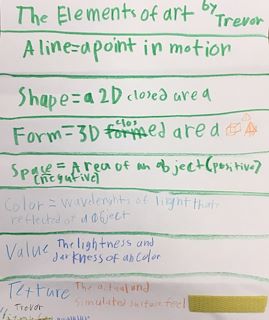 The Elements of art by Trevor
A line=a point in motion
Shape=a 2D closed area
Form=3D closed area
Space=Area of an object(positive)
(negative)
Color=wavelenghts of light that
reflected of a object
Value The lightness and
darkness of an Color
Texture The actual and
simulated surface feel
Trevor